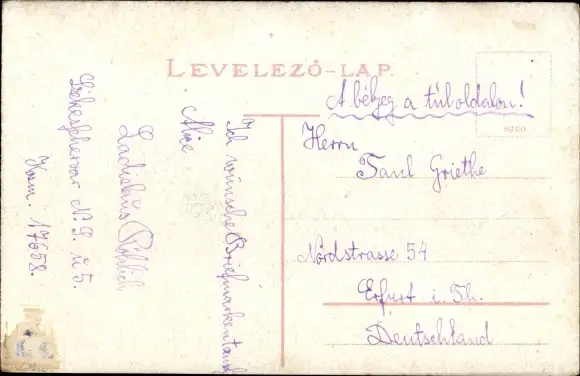 LEVELEZŐ-LAP.
A bélyeg a túloldalon!
Herrn
Paul Griethe
Nordstrasse 54
Erfurt i. Th.
Deutschland
Ich wünsche Briefmarkentausch
Alice
Ladislaus
Székesfehérvár N. S. u 5.
Kosm. 17658.